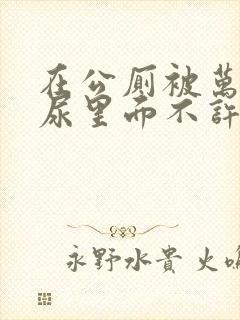 在公厕被萬
尿里而不許
永野水貴 火鳴